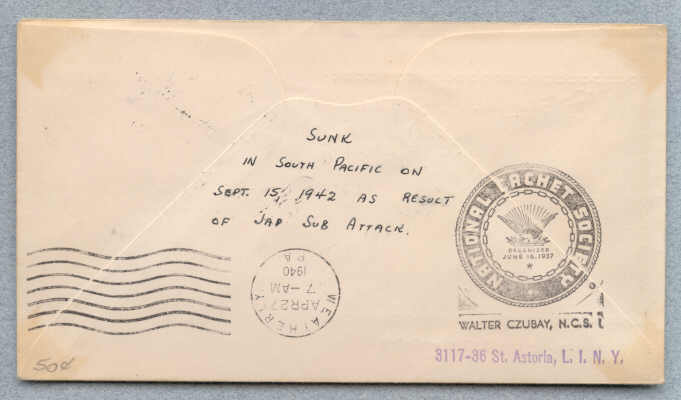 SUNK
IN SOUTH PACIFIC ON
SEPT. 15, 1942 AS RESULT
OF JAP SUB ATTACK.
NATIONAL CACHET SOCIETY
ORGANIZED
JUNE 16, 1937
WALTER CZUBAY, N.C.S.
3117-36 St. Astoria, L. I. N. Y.
WEATHERLY
APR 27
7 - AM
1940
PA
50¢